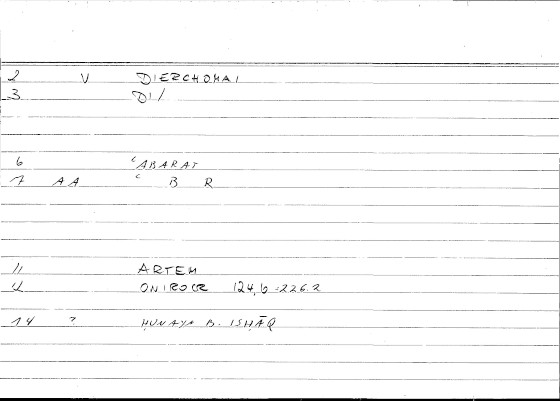 2 V DIERCHOMAI
3 DI/
6 ʿABARAT
7 AA ʿ B R
11 ARTEM
ONIROCR 124,6 = 226.2
14 ? ḤUNAYN B. ISḤĀQ